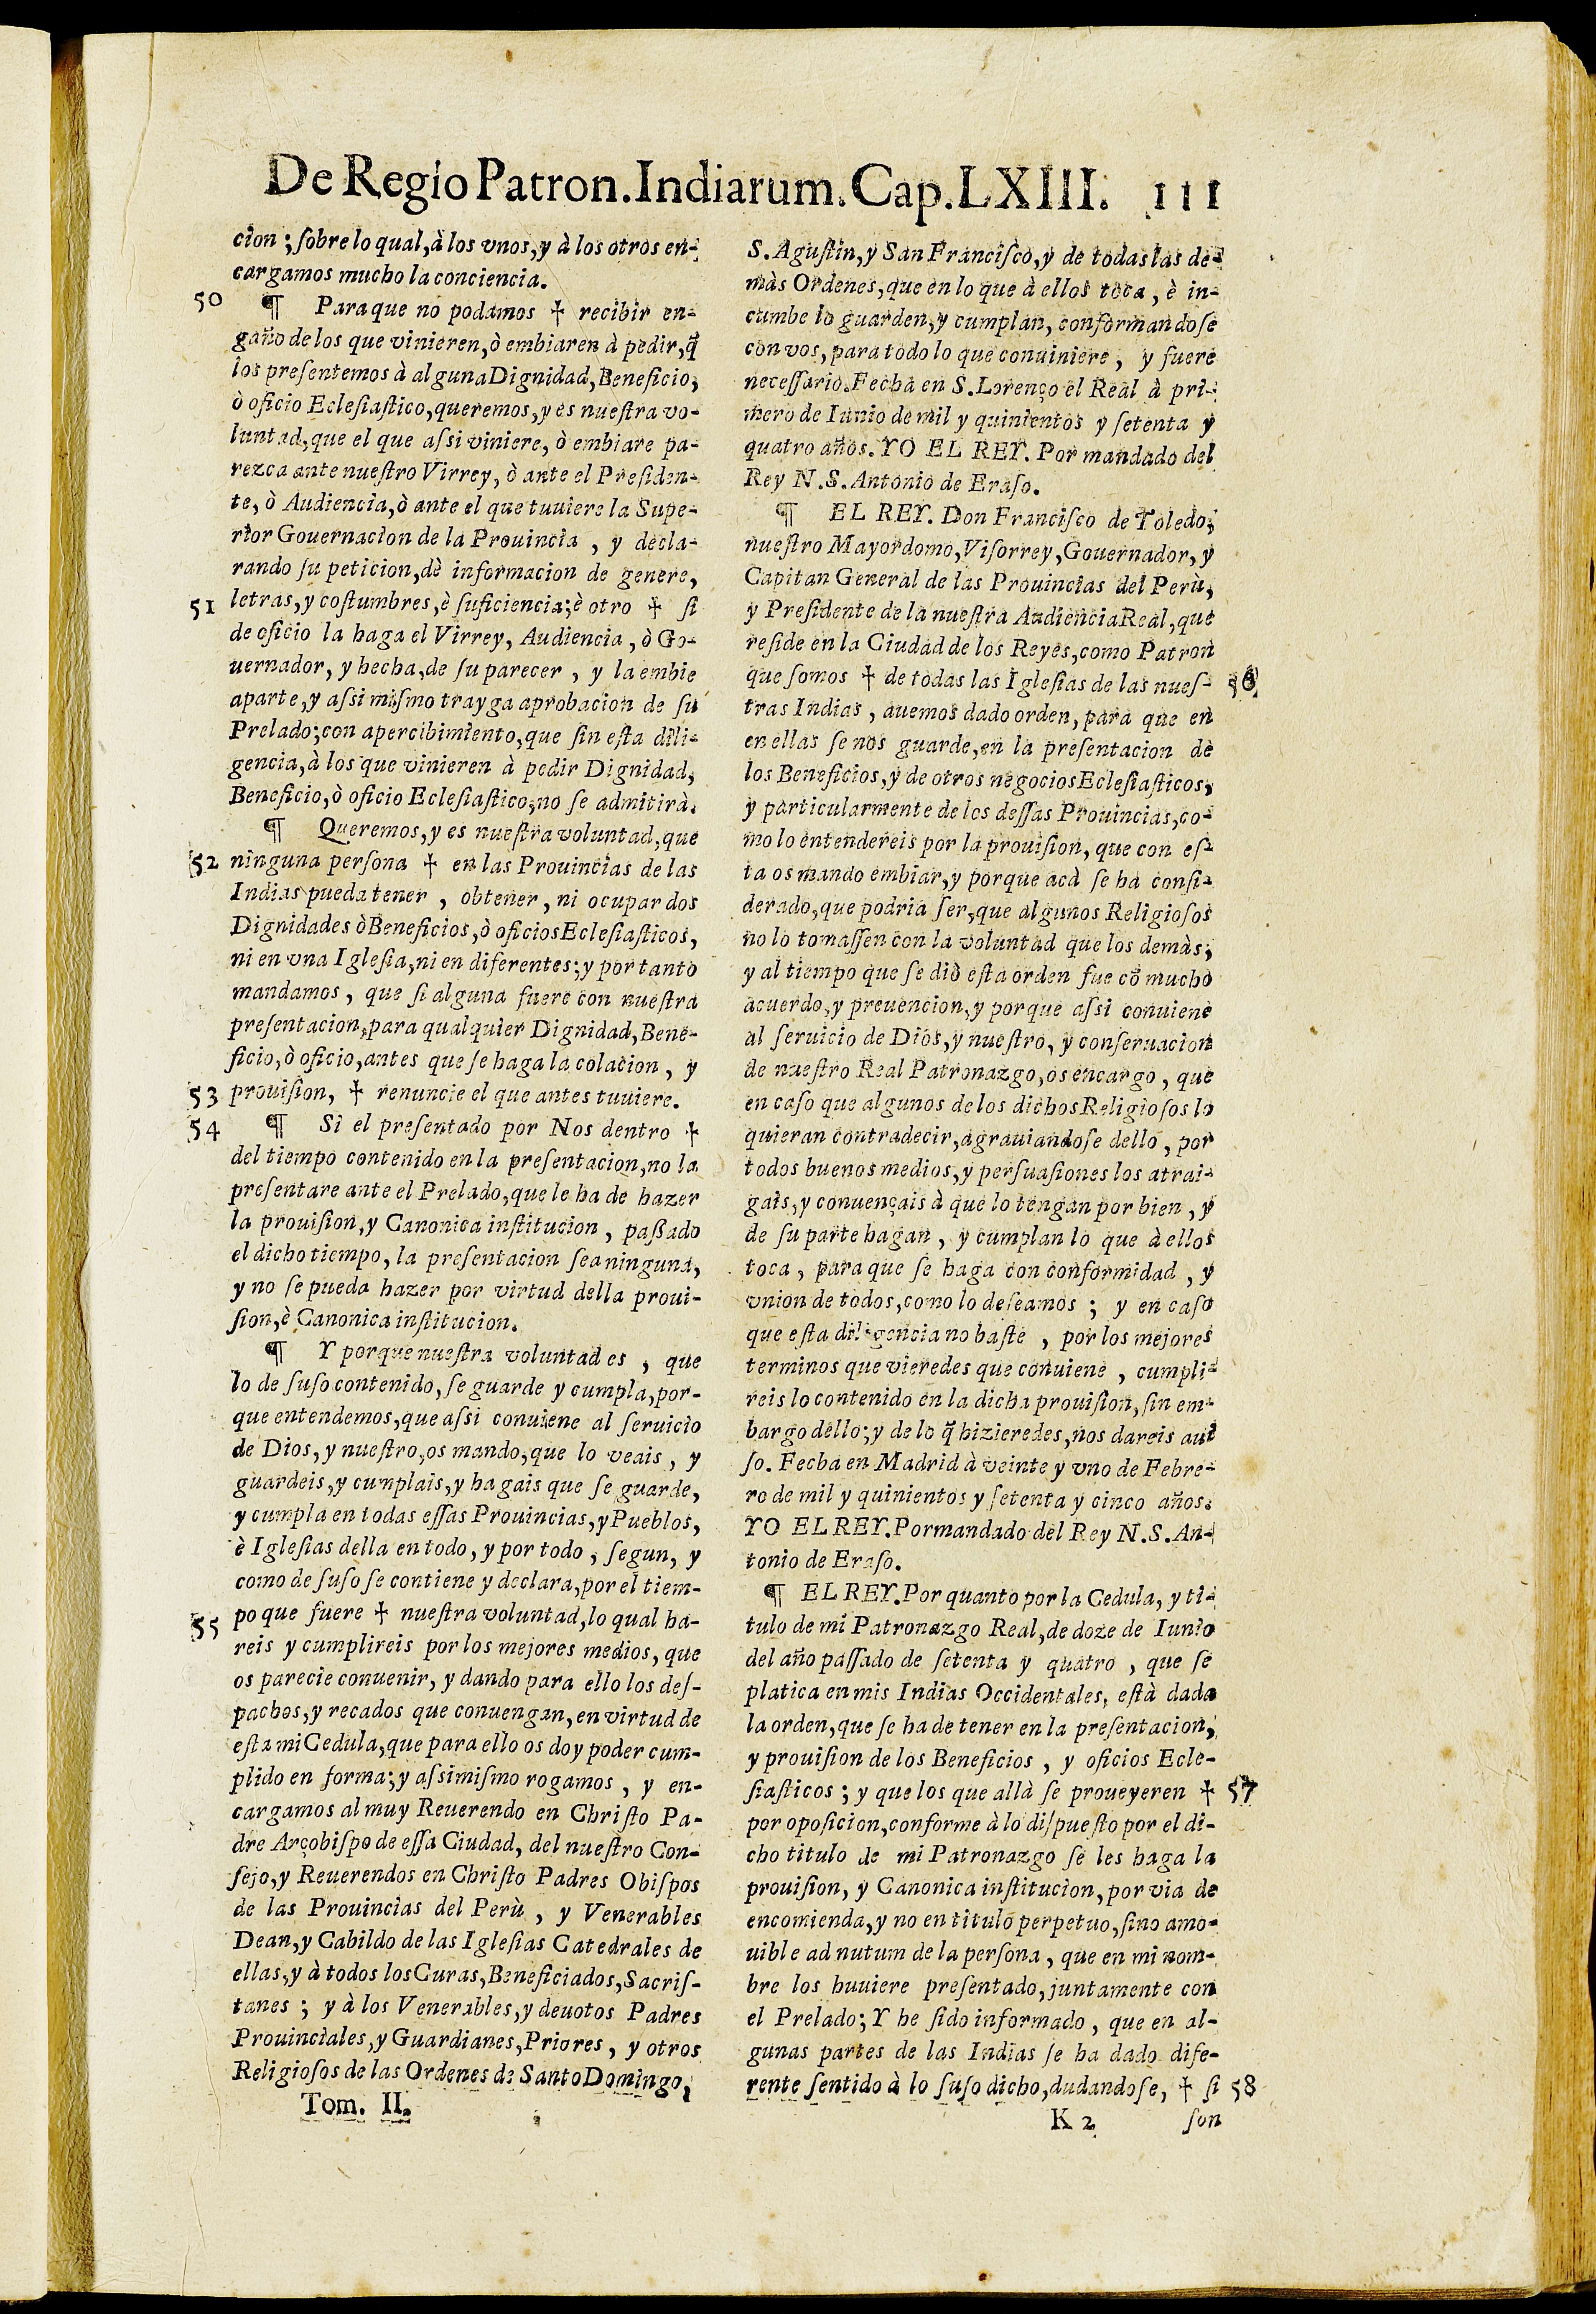 De Regio Patron. Indiarum. Cap. LXIII. 111
cion; ſobre lo qual, à los vnos, y à los otros en-
cargamos mucho la conciencia.
50 ¶ Para que no podamos † recibir en-
gaño de los que vinieren, ò embiaren à pedir, q̃
los preſentemos à alguna Dignidad, Beneficio,
ò oficio Eclesiaſtico, queremos, y es nueſtra vo-
luntad, que el que aſsi viniere, ò embiare pa-
rezca ante nueſtro Virrey, ò ante el Preſiden-
te, ò Audiencia, ò ante el que tuuiere la Supe-
rior Gouernacion de la Prouincia, y decla-
rando ſu peticion, dè informacion de genere,
51 letras, y coſtumbres, è ſuficiencia; è otro † ſi
de oficio la haga el Virrey, Audiencia, ò Go-
uernador, y hecha, de ſu parecer, y la embie
aparte, y aſsi miſmo trayga aprobacion de ſu
Prelado; con apercibimiento, que ſin eſta dili-
gencia, à los que vinieren à pedir Dignidad,
Beneficio, ò oficio Ecleſiaſtico, no ſe admitirà.
¶ Queremos, y es nueſtra voluntad, que
52 ninguna perſona † en las Prouincias de las
Indias pueda tener, obtener, ni ocupar dos
Dignidades ò Beneficios, ò oficios Ecleſiaſticos,
ni en vna Igleſia, ni en diferentes; y por tanto
mandamos, que ſi alguna fuere con nueſtra
preſentacion, para qualquier Dignidad, Bene-
ficio, ò oficio, antes que ſe haga la colacion, y
53 prouiſion, † renuncie el que antes tuuiere.
54 ¶ Si el preſentado por Nos dentro †
del tiempo contenido en la preſentacion, no la
preſentare ante el Prelado, que le ha de hazer
la prouiſion, y Canonica inſtitucion, paßado
el dicho tiempo, la preſentacion ſea ninguna,
y no ſe pueda hazer por virtud della proui-
ſion, è Canonica inſtitucion.
¶ Y porque nueſtra voluntad es, que
lo de ſuſo contenido, ſe guarde y cumpla, por-
que entendemos, que aſsi conuiene al ſeruicio
de Dios, y nueſtro, os mando, que lo veais, y
guardeis, y cumplais, y hagais que ſe guarde,
y cumpla en todas eſſas Prouincias, y Pueblos,
è Igleſias della en todo, y por todo, ſegun, y
como de ſuſo ſe contiene y declara, por el tiem-
55 po que fuere † nueſtra voluntad, lo qual ha-
reis y cumplireis por los mejores medios, que
os parecie conuenir, y dando para ello los deſ-
pachos, y recados que conuengan, en virtud de
eſta mi Cedula, que para ello os doy poder cum-
plido en forma; y aſsimiſmo rogamos, y en-
cargamos al muy Reuerendo en Chriſto Pa-
dre Arçobiſpo de eſſa Ciudad, del nueſtro Con-
ſejo, y Reuerendos en Chriſto Padres Obiſpos
de las Prouincias del Perù, y Venerables
Dean, y Cabildo de las Igleſias Catedrales de
ellas, y à todos los Curas, Beneficiados, Sacriſ-
tanes; y à los Venerables, y deuotos Padres
Prouinciales, y Guardianes, Priores, y otros
Religioſos de las Ordenes de Santo Domingo,
Tom. II.
S. Aguſtin, y San Franciſco, y de todas las de-
màs Ordenes, que en lo que à ellos toca, è in-
cumbe lo guarden, y cumplan, conformandoſe
con vos, para todo lo que conuiniere, y fuere
neceſſario. Fecha en S. Lorenço el Real à pri-
mero de Iunio de mil y quinientos y ſetenta y
quatro años. YO EL REY. Por mandado del
Rey N. S. Antonio de Eraſo.
¶ EL REY. Don Franciſco de Toledo,
nueſtro Mayordomo, Viſorrey, Gouernador, y
Capitan General de las Prouincias del Perù,
y Preſidente de la nueſtra Audiencia Real, que
reſide en la Ciudad de los Reyes, como Patron
que ſomos † de todas las Igleſias de las nueſ- 56
tras Indias, auemos dado orden, para que en
en ellas ſe nos guarde, en la preſentacion de
los Beneficios, y de otros negocios Ecleſiaſticos,
y particularmente de los deſſas Prouincias, co-
mo lo entendereis por la prouiſion, que con eſ-
ta os mando embiar, y porque acà ſe ha conſi-
derado, que podria ſer, que algunos Religioſos
no lo tomaſſen con la voluntad que los demàs,
y al tiempo que ſe diò eſta orden fue cõ mucho
acuerdo, y preuencion, y porque aſsi conuiene
al ſeruicio de Dios, y nueſtro, y conſeruacion
de nueſtro Real Patronazgo, os encargo, que
en caſo que algunos de los dichos Religioſos lo
quieran contradecir, agrauiandoſe dello, por
todos buenos medios, y perſuaſiones los atrai-
gais, y conuençais à que lo tengan por bien, y
de ſu parte hagan, y cumplan lo que à ellos
toca, para que ſe haga con conformidad, y
vnion de todos, como lo deſeamos; y en caſo
que eſta diligencia no baſte, por los mejores
terminos que vieredes que conuiene, cumpli-
reis lo contenido en la dicha prouiſion, ſin em-
bargo dello; y de lo q̃ hizieredes, nos dareis aui
ſo. Fecha en Madrid à veinte y vno de Febre-
ro de mil y quinientos y ſetenta y cinco años.
YO EL REY. Por mandado del Rey N. S. An-
tonio de Eraſo.
¶ EL REY. Por quanto por la Cedula, y ti-
tulo de mi Patronazgo Real, de doze de Iunio
del año paſſado de ſetenta y quatro, que ſe
platica en mis Indias Occidentales, eſtà dada
la orden, que ſe ha de tener en la preſentacion,
y prouiſion de los Beneficios, y oficios Ecle-
ſiaſticos; y que los que allà ſe proueyeren † 57
por opoſicion, conforme à lo diſpueſto por el di-
cho titulo de mi Patronazgo ſe les haga la
prouiſion, y Canonica inſtitucion, por via de
encomienda, y no en titulo perpetuo, ſino amo-
uible ad nutum de la perſona, que en mi nom-
bre los huuiere preſentado, juntamente con
el Prelado; Y he ſido informado, que en al-
gunas partes de las Indias ſe ha dado dife-
rente ſentido à lo ſuſo dicho, dudandoſe, † ſi 58
K 2 ſon